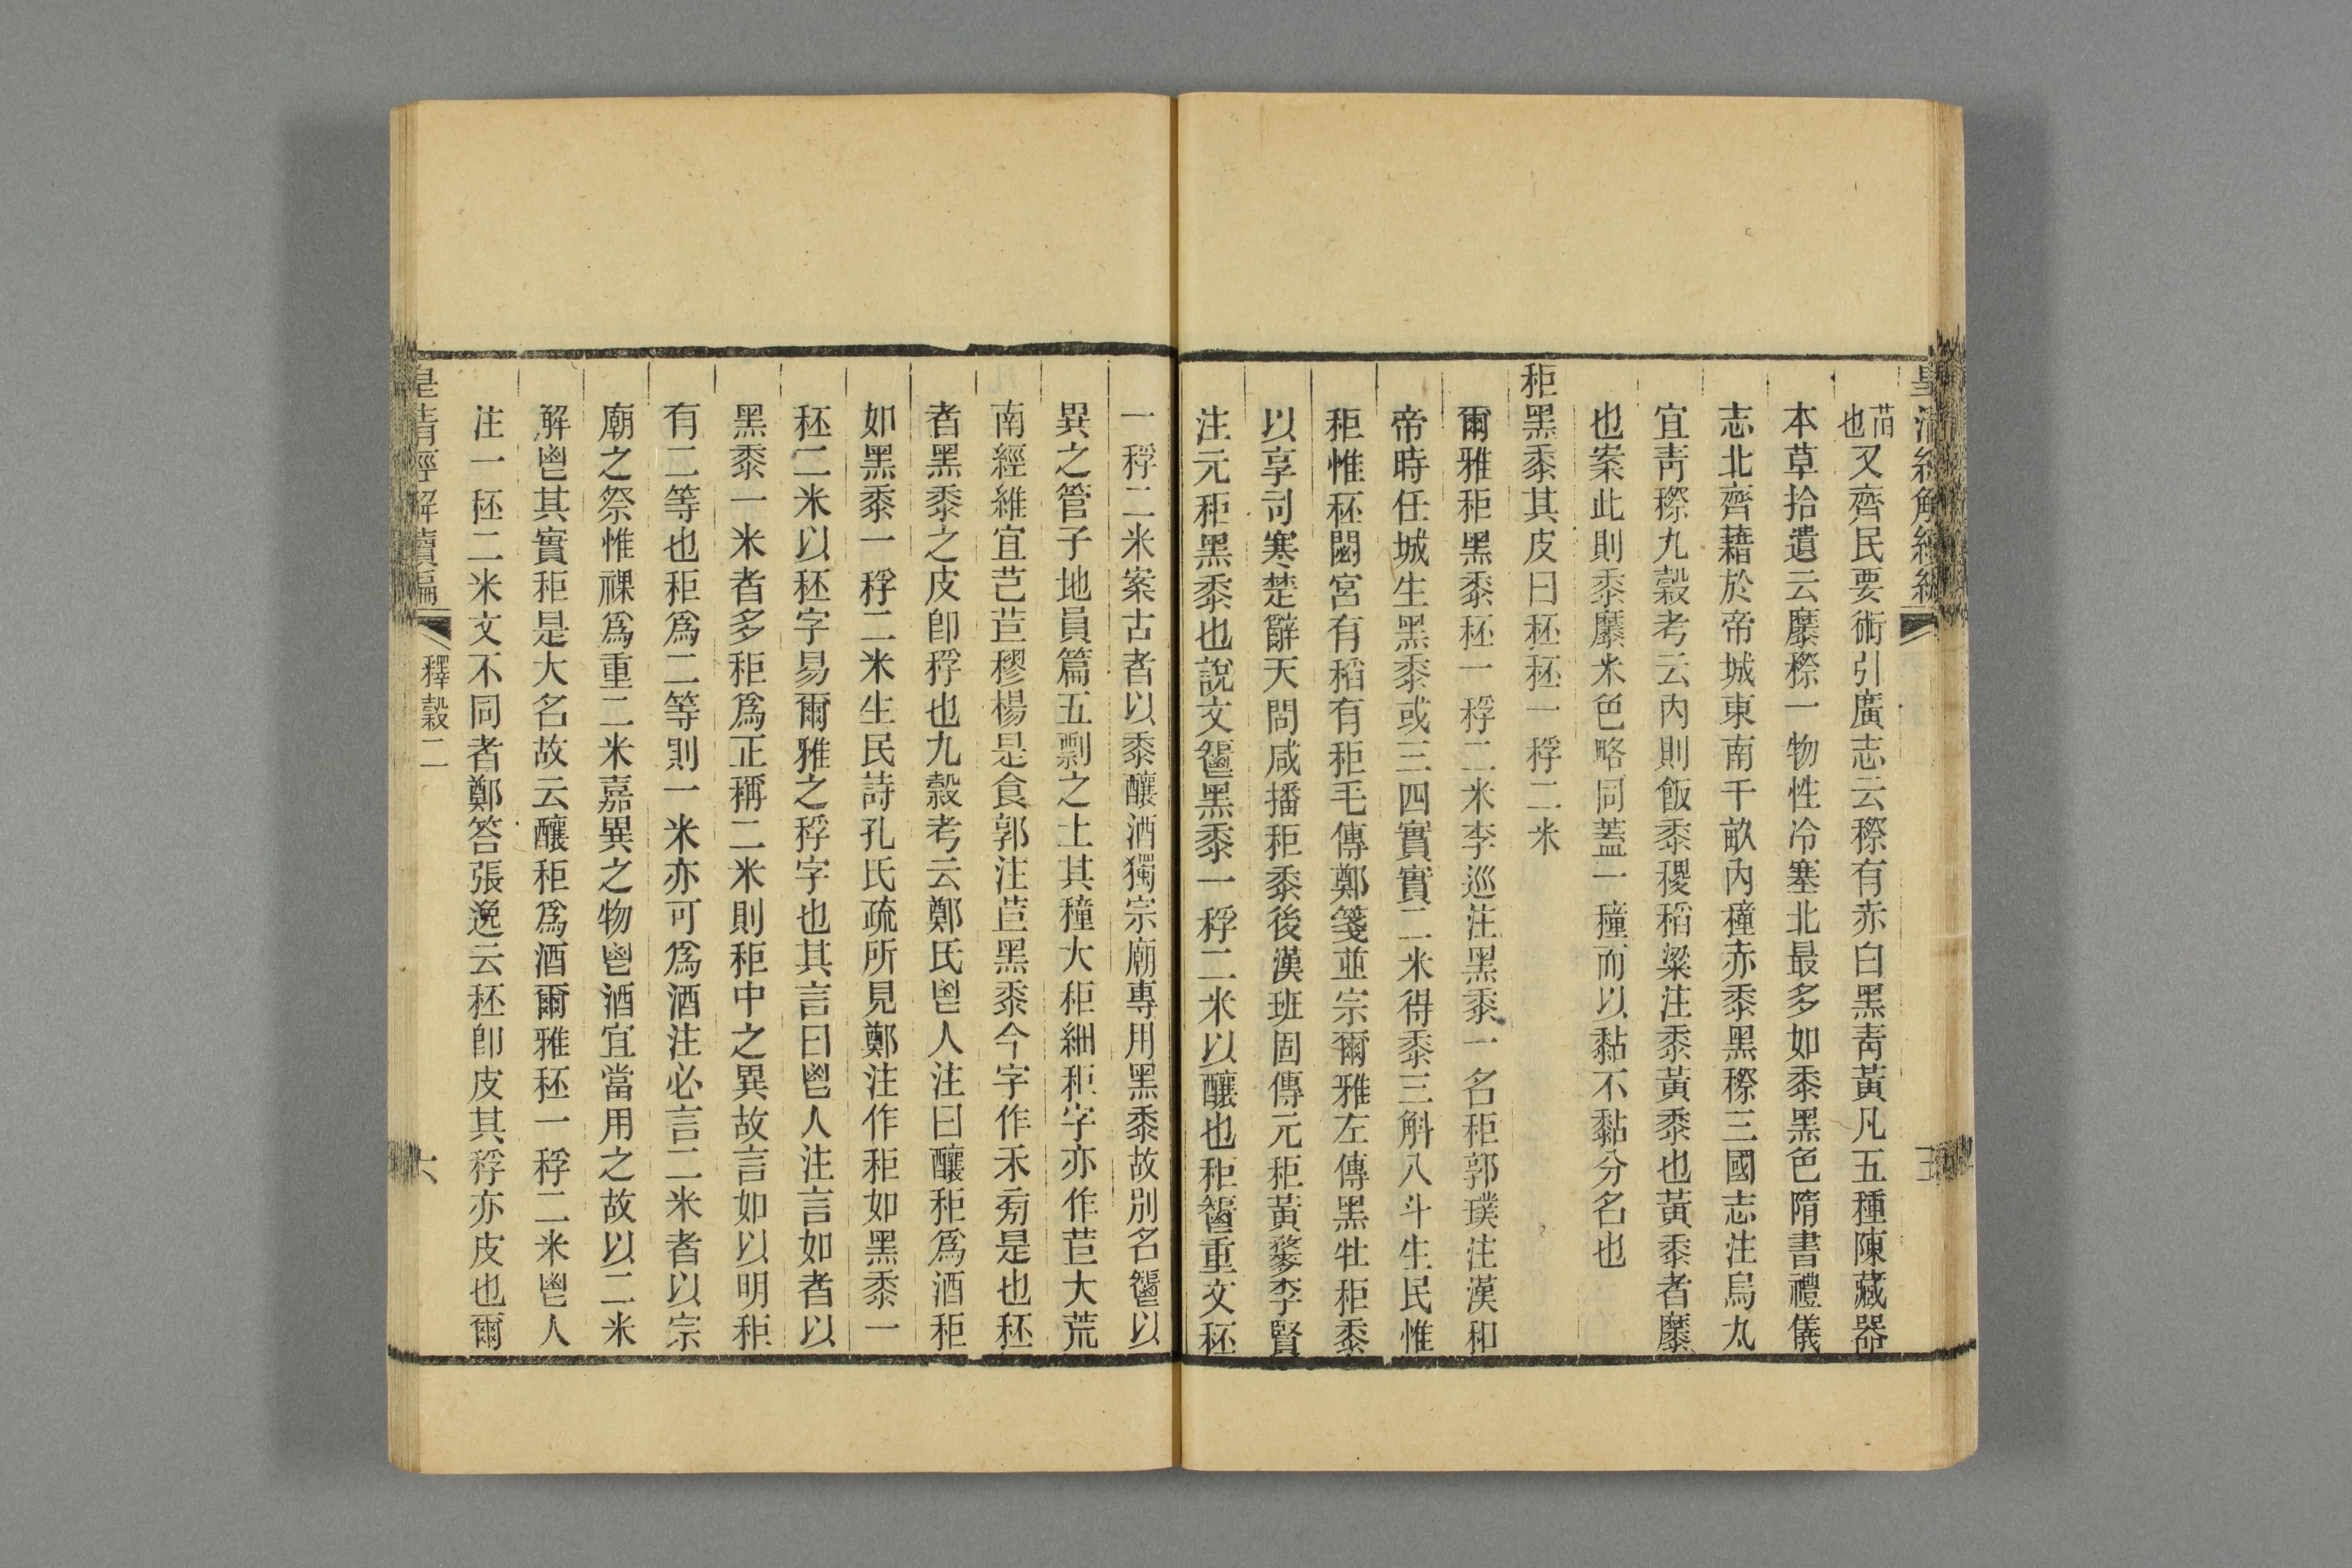 皇清經解續編
苖也又齊民要術引廣志云穄有赤白黑靑黃凡五種陳藏器
本草拾遺云穈穄一物性冷塞北最多如黍黑色隋書禮儀
志北齊藉於帝城東南千畝內種赤黍黑穄三國志注烏丸
宜靑穄九穀考云內則飯黍稷稻粱注黍黃黍也黃黍者穈
也案此則黍穈米色略同蓋一穜而以黏不黏分名也
秬黑黍其皮曰秠秠一稃二米
爾雅秬黑黍秠一稃二米李巡注黑黍一名秬郭璞注漢和
帝時任城生黑黍或三四實實二米得黍三斛八斗生民惟
秬惟秠閟宮有稻有秬毛傳鄭箋並宗爾雅左傳黑牡秬黍
以享司寒楚辭天問咸播秬黍後漢班固傳元秬黃麰李賢
注元秬黑黍也說文𩰤黑黍一稃二米以釀也秬𩰤重文秠
一稃二米案古者以黍釀酒獨宗廟專用黑黍故別名𩰤以
異之管子地員篇五剽之土其穜大秬細秬字亦作苣大荒
南經維宜芑苣穋楊是食郭注苣黑黍今字作禾旁是也秠
者黑黍之皮卽稃也九穀考云鄭氏鬯人注曰釀秬爲酒秬
如黑黍一稃二米生民詩孔氏疏所見鄭注作秬如黑黍一
秠二米以秠字易爾雅之稃字也其言曰鬯人注言如者以
黑黍一米者多秬爲正稱二米則秬中之異故言如以明秬
有二等也秬爲二等則一米亦可爲酒注必言二米者以宗
廟之祭惟祼爲重二米嘉異之物鬯酒宜當用之故以二米
解鬯其實秬是大名故云釀秬爲酒爾雅秠一稃二米鬯人
注一秠二米文不同者鄭答張逸云秠卽皮其稃亦皮也爾
皇清經解續編
釋穀二
六